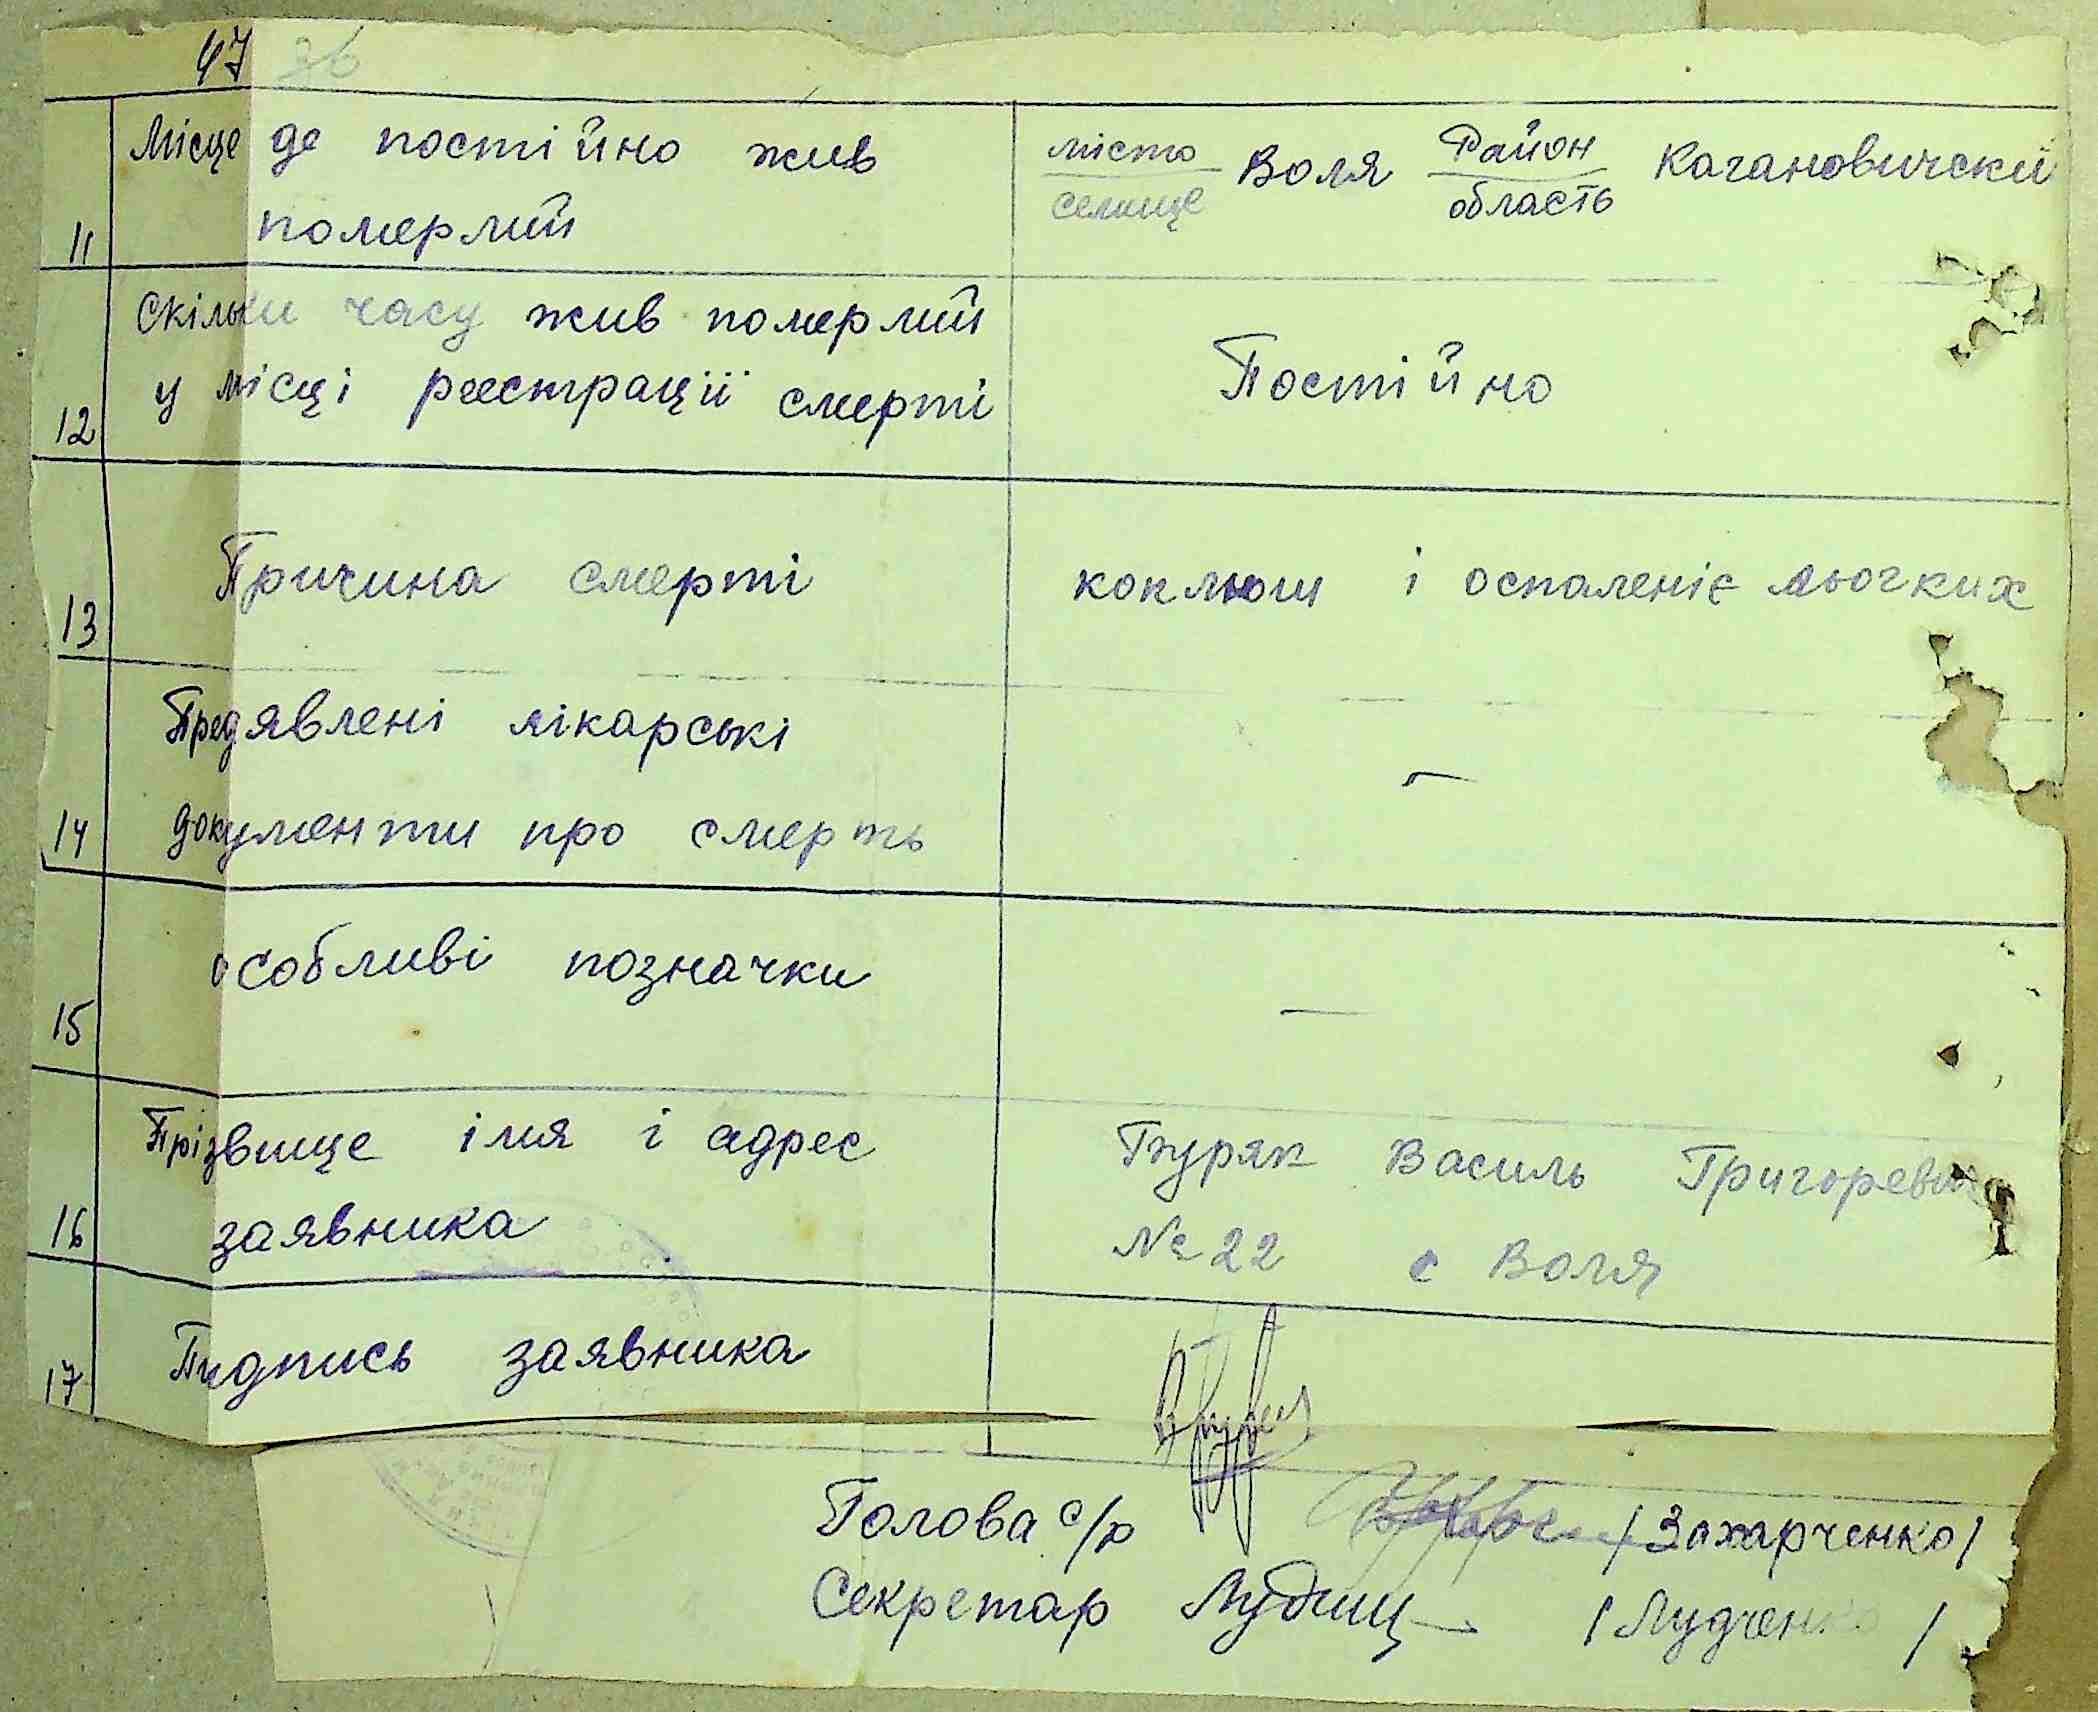 47 36
Місце де постійно жив
померлий
11
місто Воля Район Кагановическій
селище область
Скільки часу жив померлий
у місці реєстрації смерті
12
Постійно
13
Причина смерті
коклюш і оспаленіє льогких
Предявлені лікарські
документи про смерть
14
—
15
особливі позначки
—
Прізвище імя і адрес
заявника
16
Буряк Василь Григоревич
№ 22 с Воля
17
Пидпись заявника
Голова с/р /Захарченко/
Секретар /Лудченко/